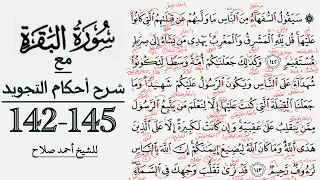 سُورَةُ البَقَرَةِ
مع
شرح أحكام التجويد
142-145
للشيخ أحمد صلاح
سَيَقُولُ ٱلسُّفَهَآءُ مِنَ ٱلنَّاسِ مَا وَلَّىٰهُمْ عَن قِبْلَتِهِمُ ٱلَّتِى كَانُوا۟
عَلَيْهَا قُل لِّلَّهِ ٱلْمَشْرِقُ وَٱلْمَغْرِبُ يَهْدِى مَن يَشَآءُ إِلَىٰ صِرَٰطٍ
مُّسْتَقِيمٍ ١٤٢ وَكَذَٰلِكَ جَعَلْنَٰكُمْ أُمَّةً وَسَطًا لِّتَكُونُوا۟
شُهَدَآءَ عَلَى ٱلنَّاسِ وَيَكُونَ ٱلرَّسُولُ عَلَيْكُمْ شَهِيدًا وَمَا
جَعَلْنَا ٱلْقِبْلَةَ ٱلَّتِى كُنتَ عَلَيْهَآ إِلَّا لِنَعْلَمَ مَن يَتَّبِعُ ٱلرَّسُولَ
مِمَّن يَنقَلِبُ عَلَىٰ عَقِبَيْهِ وَإِن كَانَتْ لَكَبِيرَةً إِلَّا عَلَى ٱلَّذِينَ
هَدَى ٱللَّهُ وَمَا كَانَ ٱللَّهُ لِيُضِيعَ إِيمَٰنَكُمْ إِنَّ ٱللَّهَ بِٱلنَّاسِ
لَرَءُوفٌ رَّحِيمٌ ١٤٣ قَدْ نَرَىٰ تَقَلُّبَ وَجْهِكَ فِى ٱلسَّمَآءِ